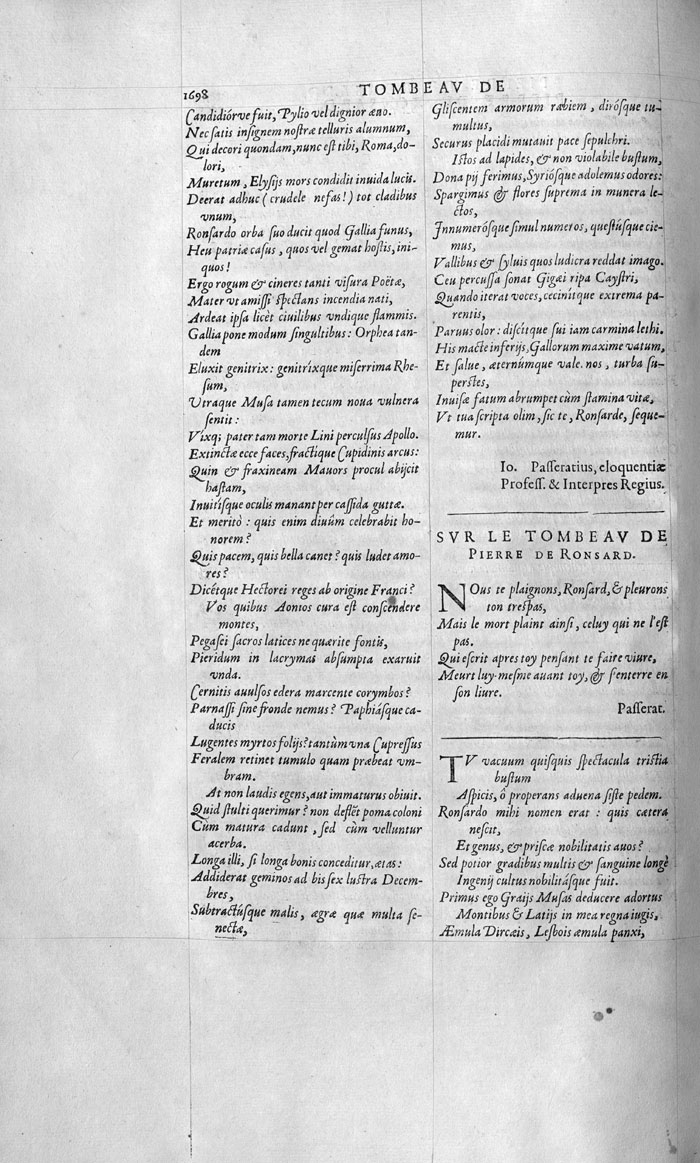 1698
TOMBEAV DE
Candidiórve fuit, Pylio vel dignior æuo.
Nec satis insignem nostræ telluris alumnum,
Qui decori quondam, nunc est tibi, Roma, do-
lori,
Muretum, Elysijs mors condidit inuida lucis.
Deerat adhuc (crudele nefas!) tot cladibus
vnum,
Ronsardo orba suo ducit quod Gallia funus,
Heu patriæ casus, quos vel gemat hostis, ini-
quos!
Ergo rogum & cineres tanti visura Poëtæ,
Mater vt amissi spectans incendia nati,
Ardeat ipsa licèt ciuilibus vndique flammis.
Gallia pone modum singultibus: Orphea tan-
dem
Eluxit genitrix: genitríxque miserrima Rhe-
sum,
Vtraque Musa tamen tecum noua vulnera
sentit:
Víxq; pater tam morte Lini perculsus Apollo.
Extinctæ ecce faces, fractique Cupidinis arcus:
Quin & fraxineam Mauors procul abijcit
hastam,
Inuitísque oculis manant per cassida guttæ.
Et meritò: quis enim diuûm celebrabit ho-
norem?
Quis pacem, quis bella canet? quis ludet amo-
res?
Dicétque Hectorei reges ab origine Franci?
Vos quibus Aonios cura est conscendere
montes,
Pegasei sacros latices ne quærite fontis,
Pieridum in lacrymas absumpta exaruit
vnda.
Cernitis auulsos edera marcente corymbos?
Parnassi sine fronde nemus? Paphiásque ca-
ducis
Lugentes myrtos folijs? tantùm vna Cupressus
Feralem retinet tumulo quam præbeat vm-
bram.
At non laudis egens, aut immaturus obiuit.
Quid stulti querimur? non deflet poma coloni
Cùm matura cadunt, sed cùm velluntur
acerba.
Longa illi, si longa bonis conceditur, ætas:
Addiderat geminos ad bis sex lustra Decem-
bres,
Subtractúsque malis, ægræ quæ multa se-
nectæ,
Gliscentem armorum rabiem, dirósque tu-
multus,
Securus placidi mutauit pace sepulchri.
Istos ad lapides, & non violabile bustum,
Dona pij ferimus, Syriósque adolemus odores:
Spargimus & flores suprema in munera le-
ctos,
Innumerósque simul numeros, questúsque cie-
mus,
Vallibus & syluis quos ludicra reddat imago.
Ceu percussa sonat Gigæi ripa Caystri,
Quando iterat voces, cecinítque extrema pa-
rentis,
Paruus olor: discítque sui iam carmina lethi.
His macte inferijs, Gallorum maxime vatum,
Et salue, æternúmque vale. nos, turba su-
perstes,
Inuisæ fatum abrumpet cùm stamina vitæ,
Vt tua scripta olim, sic te, Ronsarde, seque-
mur.
Io. Passeratius, eloquentiæ
Profess. & Interpres Regius.
SVR LE TOMBEAV DE
PIERRE DE RONSARD.
NOus te plaignons, Ronsard, & pleurons
ton trespas,
Mais le mort plaint ainsi, celuy qui ne l'est
pas.
Qui escrit apres toy pensant te faire viure,
Meurt luy-mesme auant toy, & s'enterre en
son liure.
Passerat.
TV vacuum quisquis spectacula tristia
bustum
Aspicis, ô properans aduena siste pedem.
Ronsardo mihi nomen erat: quis cætera
nescit,
Et genus, & priscæ nobilitatis auos?
Sed potior gradibus multis & sanguine longè
Ingenij cultus nobilitásque fuit.
Primus ego Graijs Musas deducere adortus
Montibus & Latijs in mea regna iugis,
Æmula Dircæis, Lesbois æmula panxi,